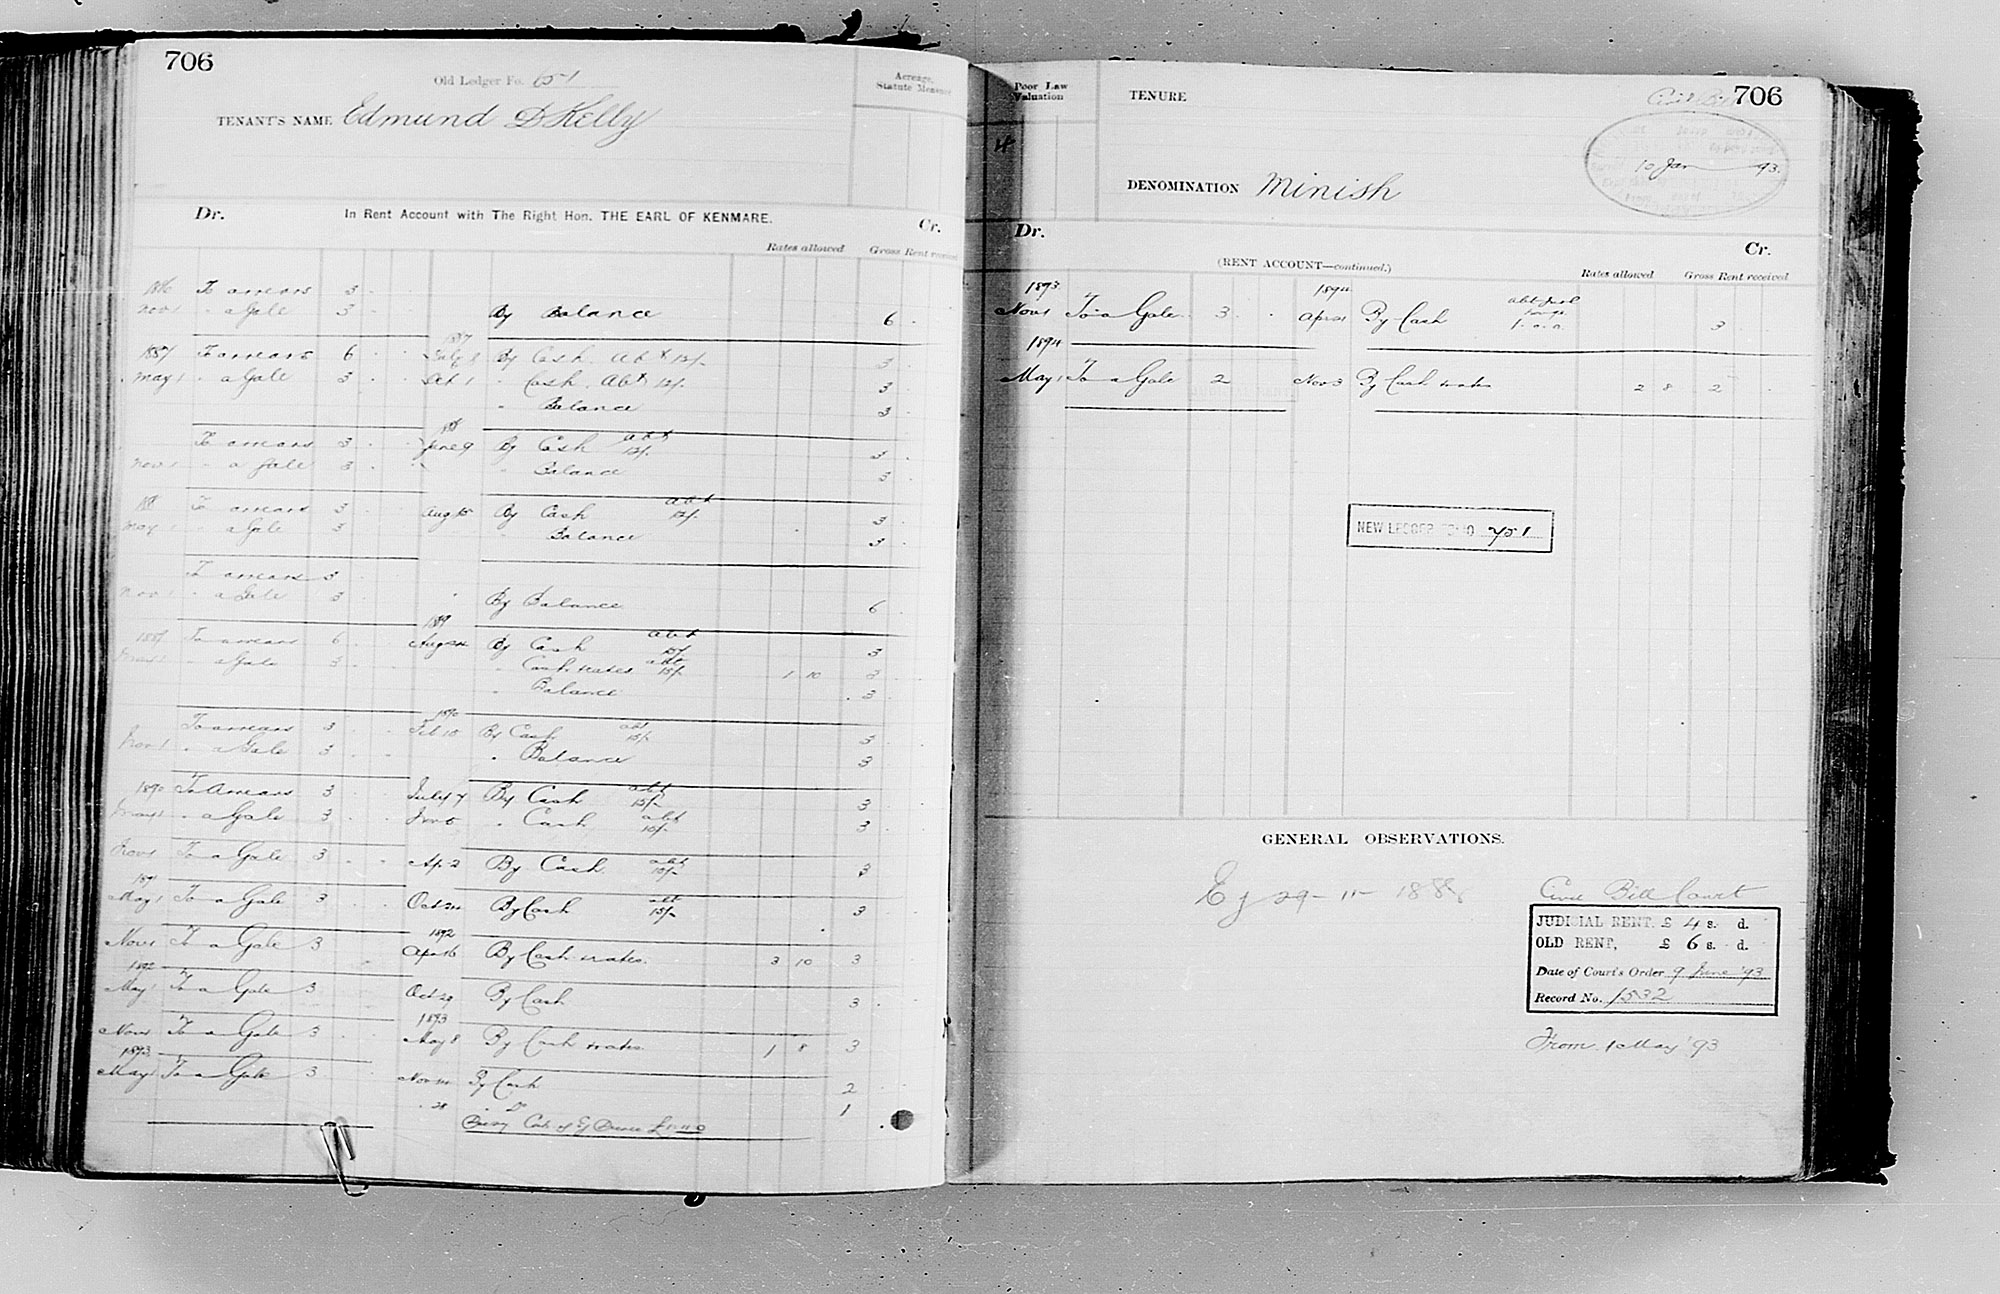 706
Old Ledger Fo. 651
TENANT'S NAME Edmund D Kelly
Acreage, Statute Measure
Dr. In Rent Account with The Right Hon. THE EARL OF KENMARE. Cr.
Rates allowed Gross Rent received
1886 To arrears 3
Nov 1 " a Gale 3 By Balance 6
1887
1887 To arrears 6 July 8 By Cash Abt 12/- 3
May 1 " a Gale 3 Oct 1 " Cash Abt 12/- 3
" Balance 3
188
To arrears 3 June 9 By Cash abt 12/- 3
Nov 1 " a Gale 3 " Balance 3
188 To arrears 3 Aug 15 By Cash abt 12/- 3
May 1 " a Gale 3 " Balance 3
To arrears 3
Nov 1 " a Gale 3 By Balance 6
1889
188 To arrears 6 Aug 24 By Cash abt 15/- 3
May 1 " a Gale 3 " Cash & rates abt 15/- 1 10 3
" Balance 3
1890
To arrears 3 Feb 10 By Cash abt 15/- 3
Nov 1 " a Gale 3 " Balance 3
1890 To Arrears 3 July 7 By Cash abt 15/- 3
May 1 " a Gale 3 " Cash abt 10/- 3
Nov 1 To a Gale 3 Ap 2 By Cash abt 10/- 3
1891
May 1 To a Gale 3 Oct 24 By Cash abt 15/- 3
1892
Nov 1 To a Gale 3 Apr 16 By Cash & rates 3 10 3
1892
May 1 To a Gale 3 Oct 29 By Cash 3
1893
Nov 1 To a Gale 3 May 8 By Cash & rates 1 8 3
1893
May 1 To a Gale 3 Nov 14 By Cash 2
" 28 " Do 1
Poor Law Valuation
4
TENURE
Civil Bill
706
10 Jan 93.
DENOMINATION Minish
Dr. Cr.
(RENT ACCOUNT—continued.)
Rates allowed Gross Rent received
1893 1894
Nov 1 To a Gale 3 Apr 21 By Cash 1. 0. 0. 3
1894
May 1 To a Gale 2 Nov 3 By Cash & rates 2 8 2
NEW LEDGER FOLIO 751
GENERAL OBSERVATIONS.
Ej 29-11-1888
Civil Bill Court
JUDICIAL RENT, £ 4 s. d.
OLD RENT, £ 6 s. d.
Date of Court's Order 9 June '93
Record No. 1532
From 1 May '93